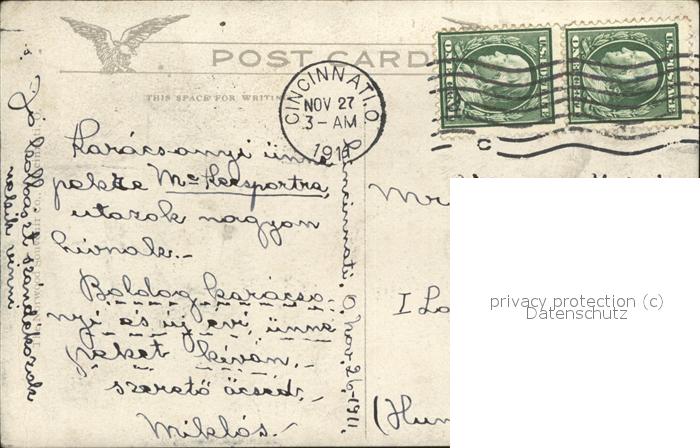 POST CARD
THIS SPACE FOR WRITIN
CINCINNATI, O.
NOV 27
3-AM
1911
Karácsonyi ünne
pekre Mc Keesportra
utazok nagyon
hivnak.-
Boldog karácso-
nyi és uj evi ünne
peket kiván.-
szerető öcsed.-
Miklós.-
Cincinnati. O. Nov. 26-1911.
Mr
I Lo
(Hun
privacy protection (c)
Datenschutz